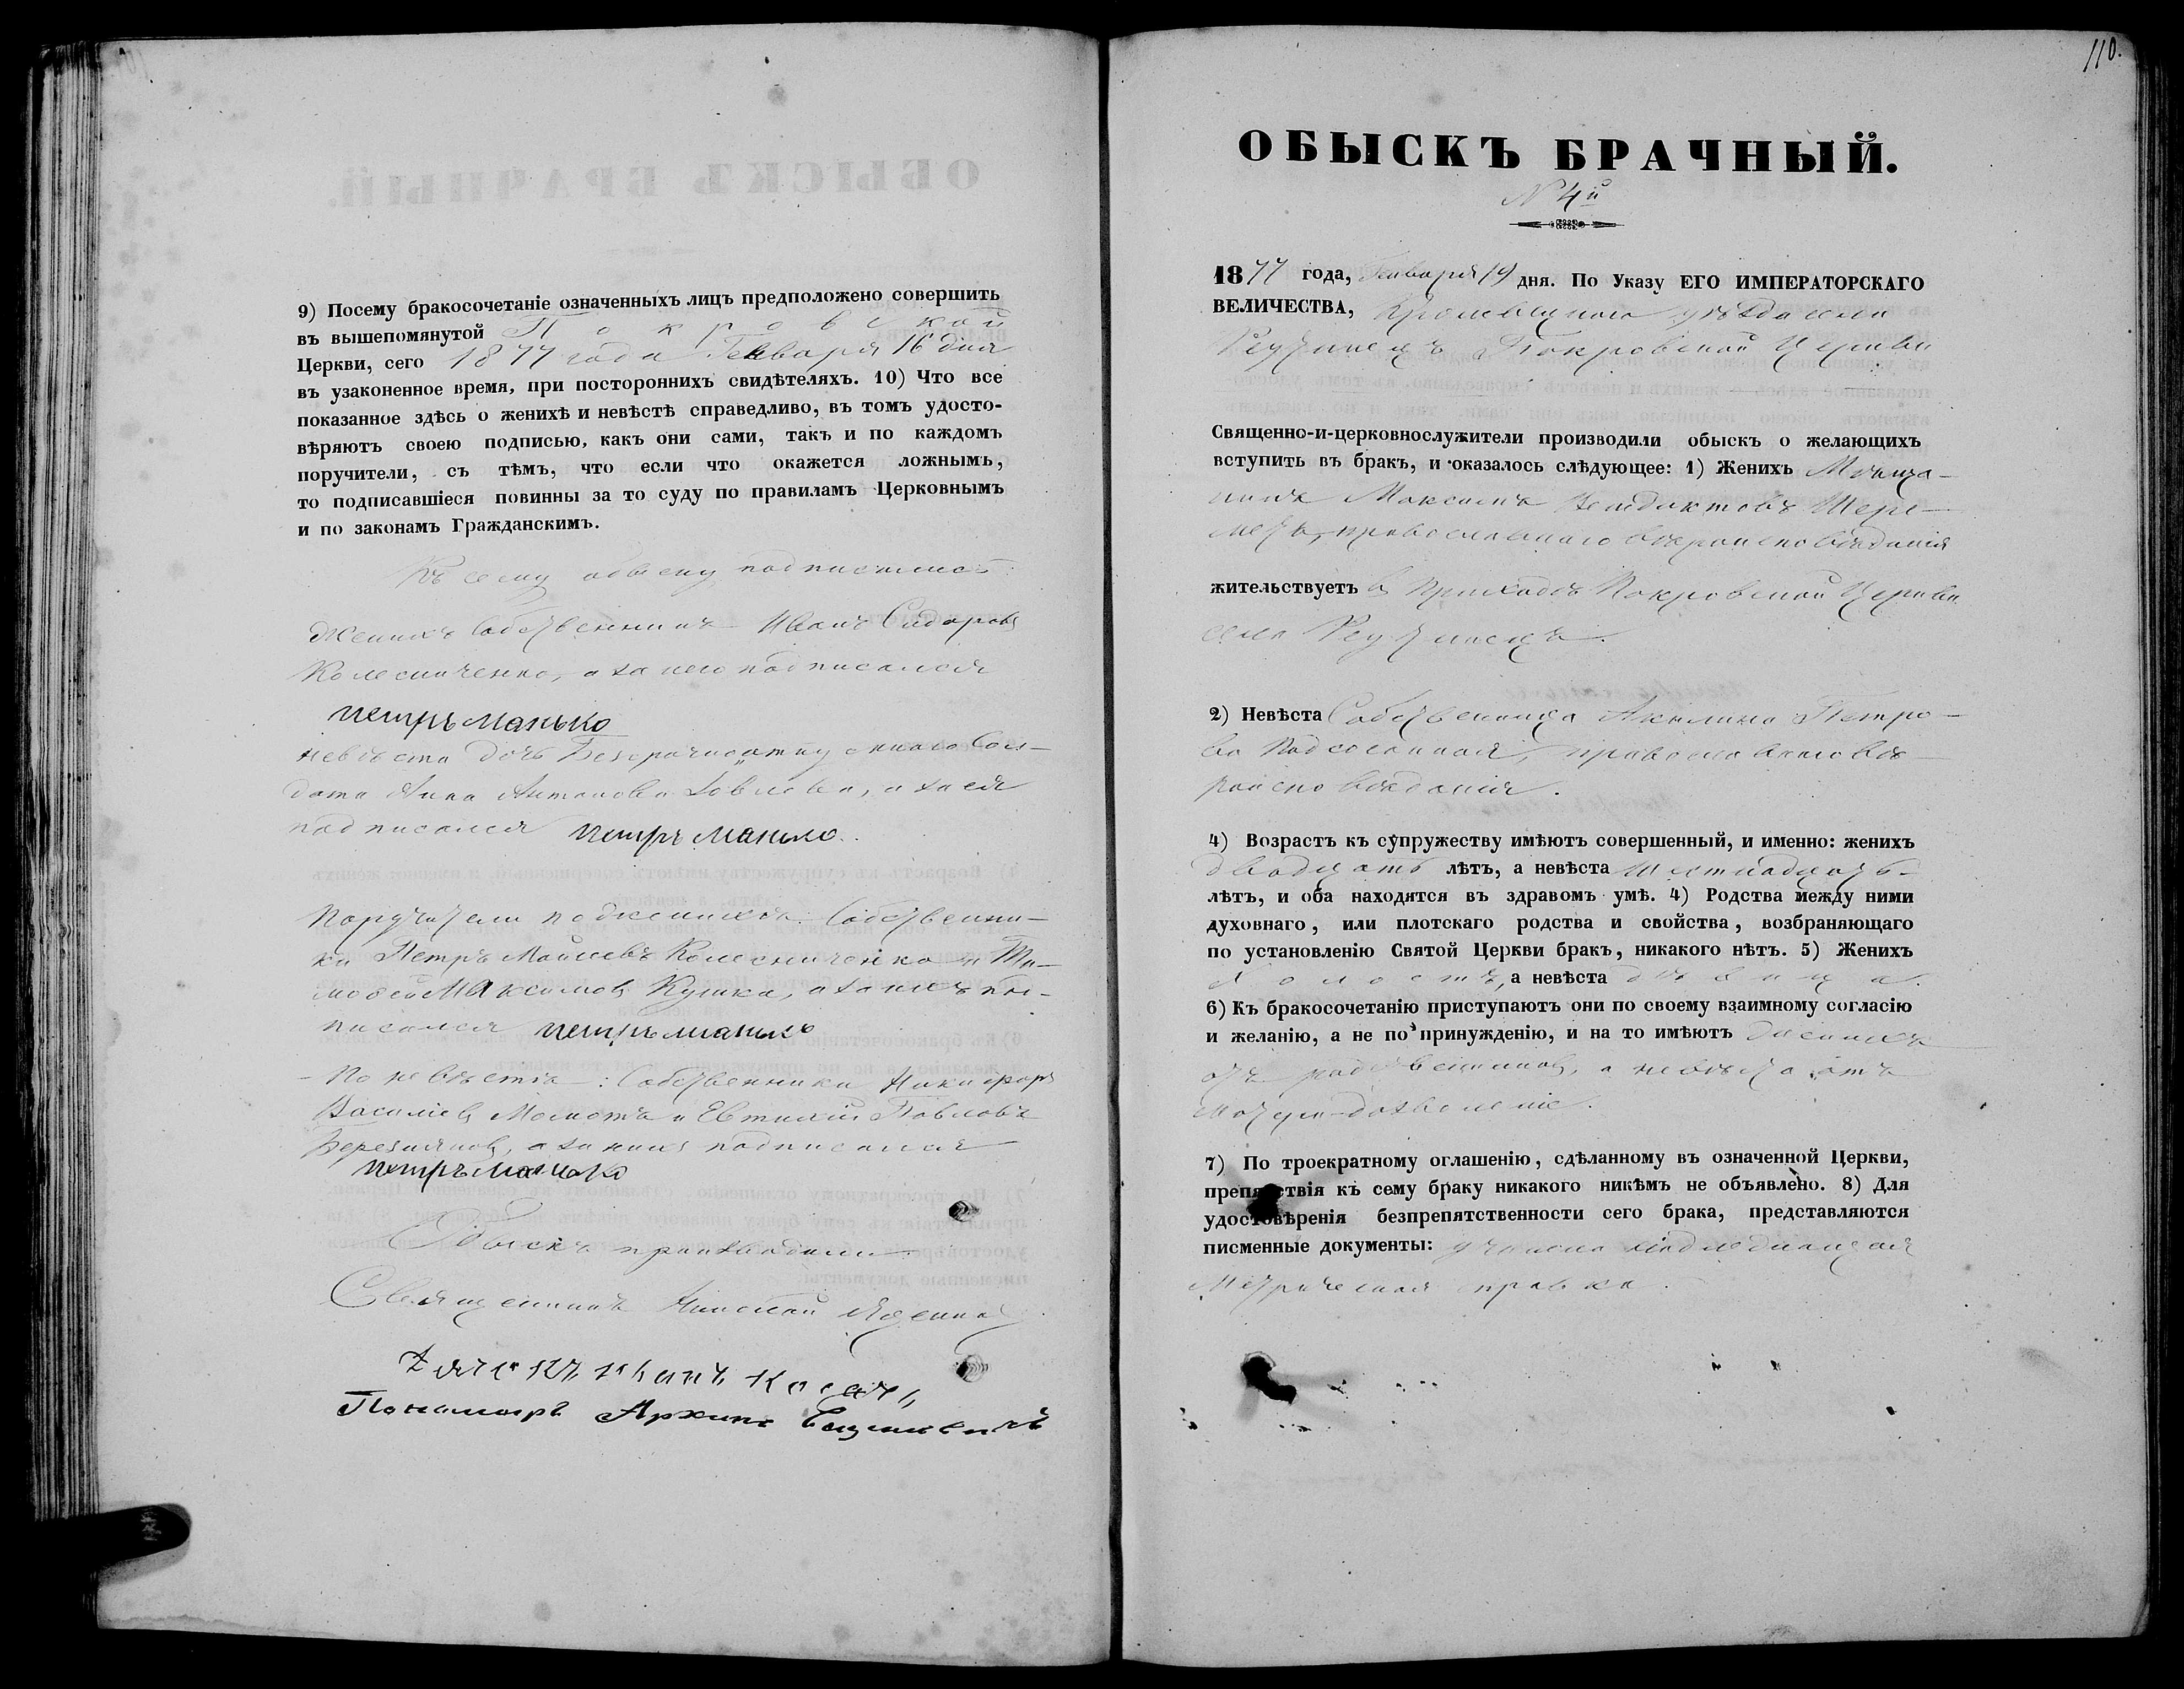 9) Посему бракосочетаніе означенныхъ лицъ предположено совершить
въ вышепомянутой Покровской
Церкви, сего 1877 года Генваря 16 дня
въ узаконенное время, при постороннихъ свидѣтеляхъ. 10) Что все
показанное здѣсь о женихѣ и невѣстѣ справедливо, въ томъ удосто-
вѣряютъ своею подписью, какъ они сами, такъ и по каждомъ
поручители, съ тѣмъ, что если что окажется ложнымъ,
то подписавшіеся повинны за то суду по правиламъ Церковнымъ
и по законамъ Гражданскимъ.
Къ сему обыску подписались:
Женихъ Собственникъ Иванъ Сидоровъ
Колесниченко, а за него подписался
петръ манько
невѣста дочь Безсрочноотпускнаго Сол-
дата Анна Антонова, а за нея
подписался петръ манько.
Поручители по женихѣ: Собственни-
ки Петръ Моѵсеевъ Колесниченко и Ти-
мофей Максимовъ Кушка, а за нихъ по-
писался петръ манько
По невѣстѣ: Собственники Никифоръ
Василіевъ Моломъ и Евтихій Павловъ
а за нихъ подписался
петръ манько
Обыскъ производили
Священникъ Николай
Дячекъ Иванъ Косачъ
Пономарь Архипъ
110.
ОБЫСКЪ БРАЧНЫЙ.
N 4й
1877 года, Генваря 19 дня. По Указу ЕГО ИМПЕРАТОРСКАГО
ВЕЛИЧЕСТВА, Кролевецкаго уѣзда села
Реутинецъ Покровской Церкви
Священно-и-церковнослужители производили обыскъ о желающихъ
вступить въ бракъ, и оказалось слѣдующее: 1) Женихъ Мѣща-
нинъ Максимъ Венидиктовъ Шере-
метъ, православнаго вѣроисповѣданія
жительствуетъ въ приходѣ Покровской Церкви
села Реутинецъ.
2) Невѣста Собственница Акилина Петро-
ва православнаго вѣ-
роисповѣданія.
4) Возрастъ къ супружеству имѣютъ совершенный, и именно: женихъ
двадцать лѣтъ, а невѣста шестнадцать
лѣтъ, и оба находятся въ здравомъ умѣ. 4) Родства между ними
духовнаго, или плотскаго родства и свойства, возбраняющаго
по установленію Святой Церкви бракъ, никакого нѣтъ. 5) Женихъ
холостъ, а невѣста дѣвица.
6) Къ бракосочетанію приступаютъ они по своему взаимному согласію
и желанію, а не по принужденію, и на то имѣютъ женихъ
отъ родственниковъ, а невѣста отъ
матери дозволеніе.
7) По троекратному оглашенію, сдѣланному въ означенной Церкви,
препятствія къ сему браку никакого никѣмъ не объявлено. 8) Для
удостовѣренія безпрепятственности сего брака, представляются
писменные документы: учинена надлежащая
Метрическая справка.